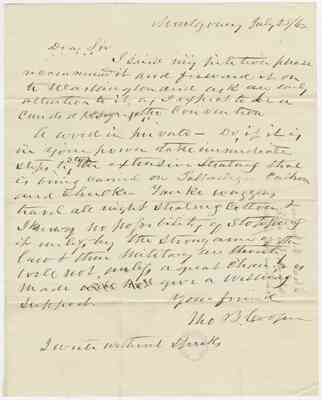 Montgomery July 25/65
Dear Sir
I send my petition please
recommend it and forward it on
to Washington and ask an early
attention to it, as I expect to be a
Candidate for the Convention
A word in private - Do, if it is
in your power take immediate
steps to stop the extensive stealing that
is being carried on Talladega
and Yankee waggons
travel all night stealing Cotton, &
I know no possibility of stopping
it unless by the strong arm of the
law & the Military
will not, unless a great Change is
made give a willing
support. Your friend
Tho B. Cooper
I write without Specks